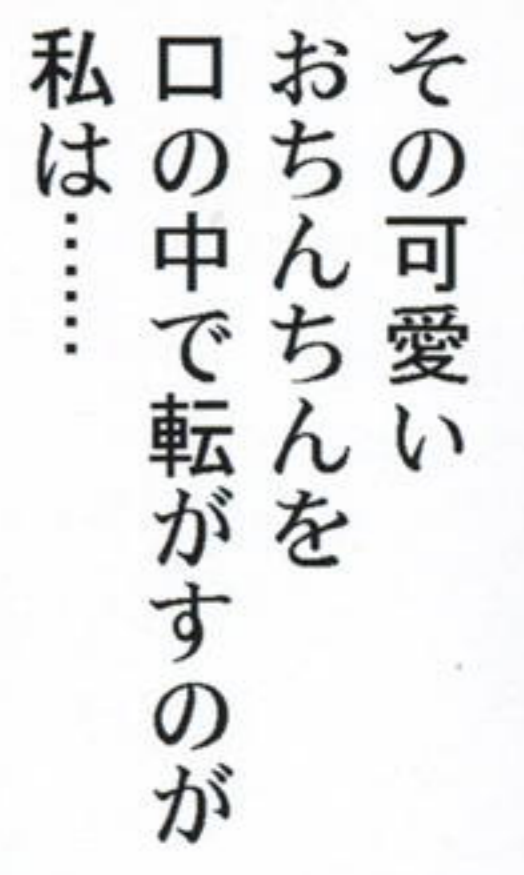 その可愛い
おちんちんを
口の中で転がすのが
私は……